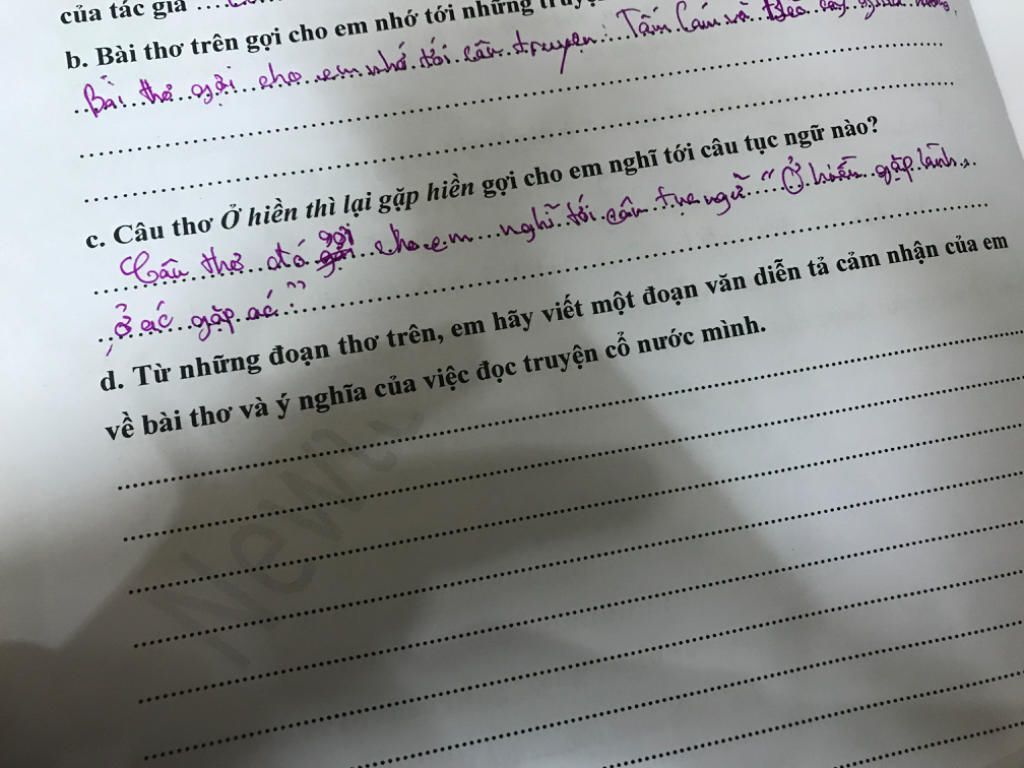 của tác giả
b. Bài thơ trên gợi cho em nhớ tới những
Bài thơ gợi cho em nhớ tới câu truyện: Tấm Cám và
c. Câu thơ Ở hiền thì lại gặp hiền gợi cho em nghĩ tới câu tục ngữ nào?
Câu thơ đó gợi cho em nghĩ tới câu tục ngữ "Ở hiền gặp lành,
ở ác gặp ác"
d. Từ những đoạn thơ trên, em hãy viết một đoạn văn diễn tả cảm nhận của em
về bài thơ và ý nghĩa của việc đọc truyện cổ nước mình.